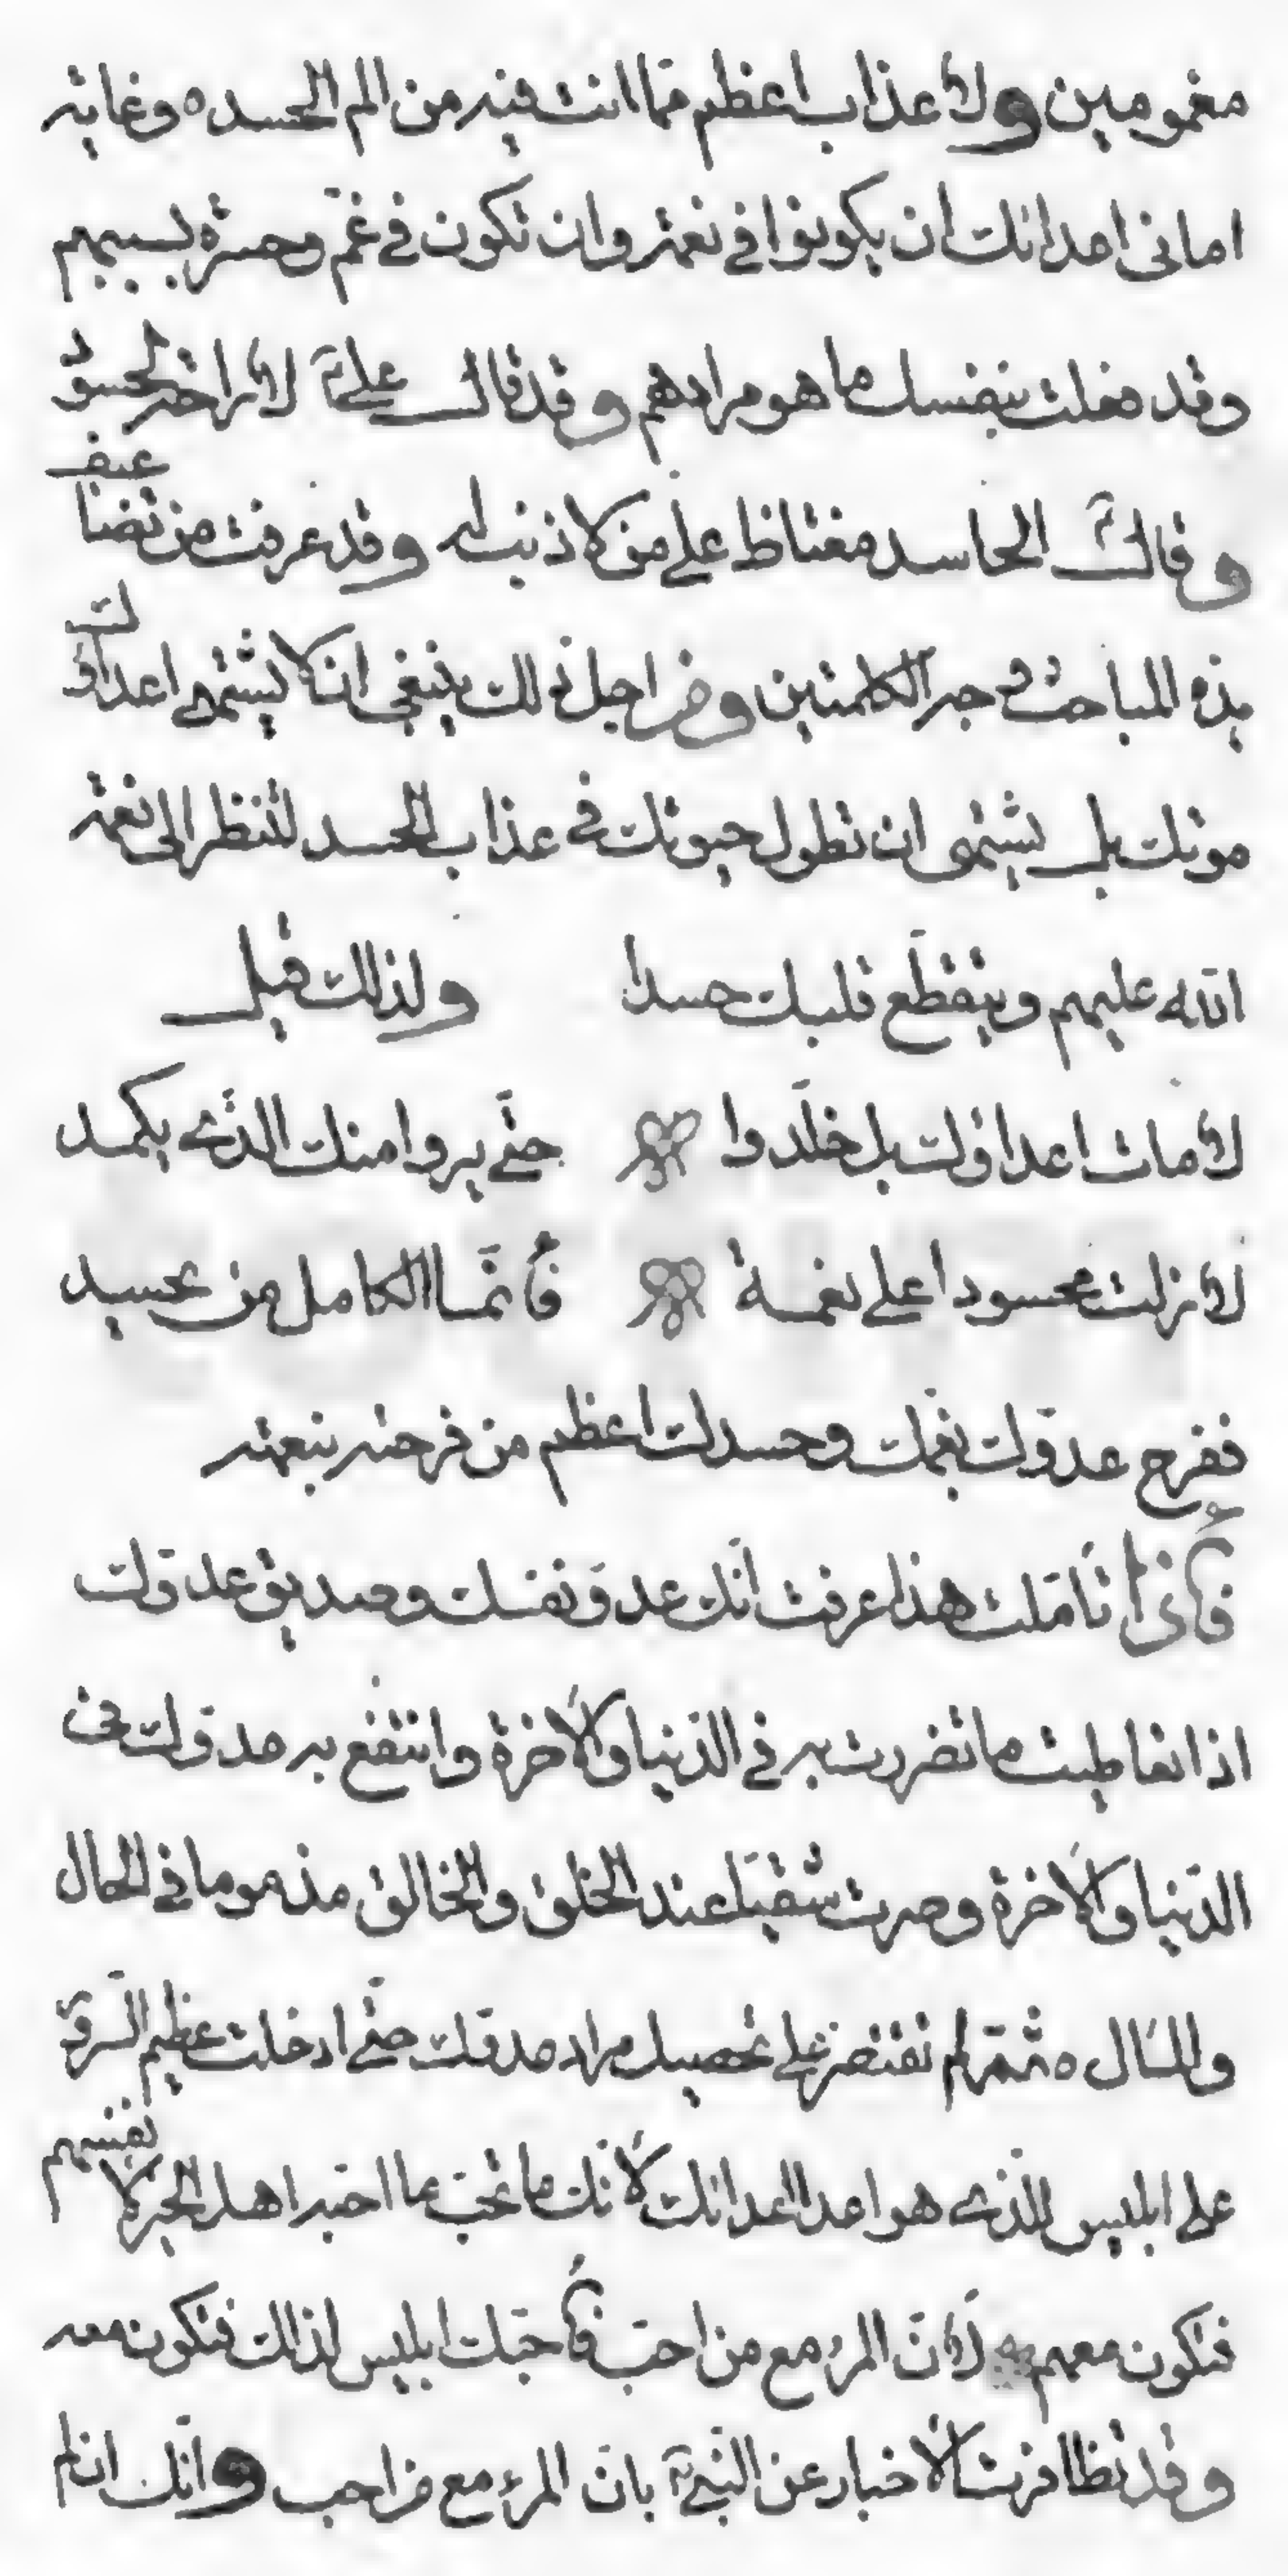 مغمومين ولا عذاب اعظم مما انت فيه من الم الحسد ه وغاية
امانى اعدائك ان يكونوا في نعمة وان تكون في غم وحسرة بسببهم
وقد فعلت بنفسك ما هو مرادهم وقد قال علي ع لا راحة لحسود
وقال ع الحاسد مغتاظ على من لا ذنب له وقد عرفت من تضاعيف
هذه المباحث وجه الكلمتين ومن اجل ذلك ينبغي ان لا يشتهى اعداؤك
موتك بل يشتهى ان تطول حيوتك في عذاب الحسد لتنظر الى نعمة
الله عليهم ويتقطع قلبك حسدا ولذلك قيل
لا مات اعداؤك بل خلدوا حتى يروا منك الذى يكمد
لا زلت محسودا على نعمة فانما الكامل من يحسد
ففرح عدوك بغمك وحسدك اعظم من فرحته بنعمته
فاذا تاملت هذا عرفت انك عدو نفسك وصديق عدوك
اذا تعاطيت ما تضررت به في الدنيا والاخرة وانتفع به عدوك في
الدنيا والاخرة وصرت شقيا عند الخلق والخالق مذموما في الحال
والمال ه ثم لم تقتصر على تحصيل مراد عدوك حتى ادخلت عظيم السرور
على ابليس الذى هو اعدا اعدائك لانك ما تحب ما احبه اهل الخير لانفسهم
فتكون معهم لان المرء مع من احب فاحبك ابليس لذلك فتكون معه
وقد تظافرت الاخبار عن النبي ص بان المرء مع من احب وانك ان لم